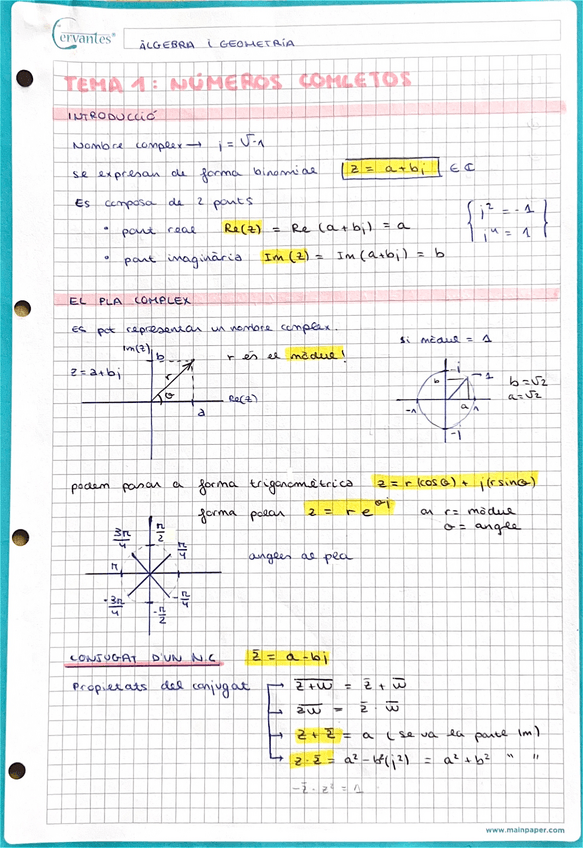 Cervantes®
ÀLGEBRA i GEOMETRIA
TEMA 1: NÚMEROS COMLETOS
INTRODUCCIÓ
Nombre complex → j = √-1
se expresan de forma binomial z = a+bj ∈ ℂ
Es composa de 2 parts
• part real Re(z) = Re (a+bj) = a
j² = -1
j⁴ = 1
• part imaginària Im(z) = Im(a+bj) = b
EL PLA COMPLEX
Es pot representar un nombre complex.
z = a+bj
Im(z)
b
r
θ
a
Re(z)
r és el mòdul!
si mòdul = 1
j
b
1
-1
a
1
-j
b = √2
a = √2
podem passar a forma trigonomètrica z = r(cosθ) + j(rsinθ)
forma polar z = r e^θj on r = mòdul
θ = angle
3π/4
π/2
π/4
π
-3π/4
-π/2
-π/4
angles al pla
CONJUGAT D'UN N.C z̄ = a-bj
Propietats del conjugat
\overline{z+w} = z̄ + w̄
\overline{zw} = z̄ · w̄
z + z̄ = a (se va la parte Im)
z · z̄ = a² - b²(j²) = a² + b² " "
www.mainpaper.com